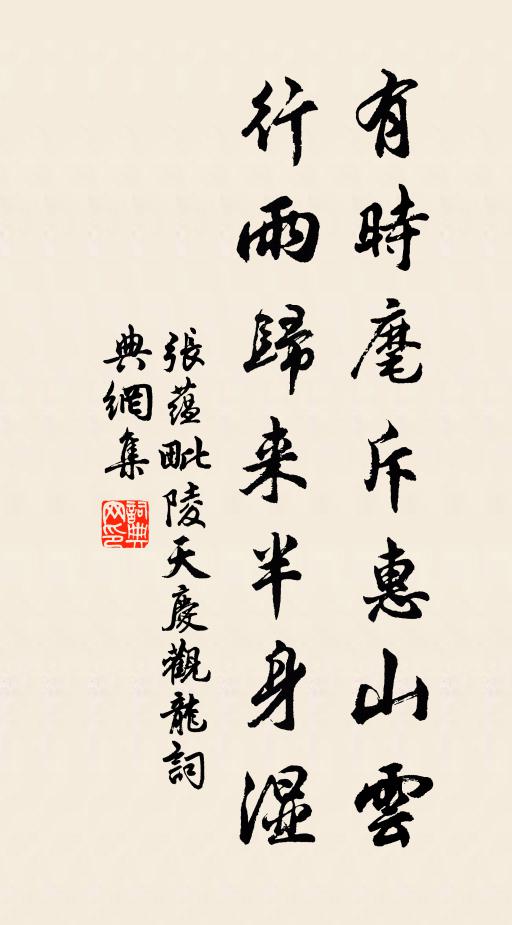 有時麾斥惠山雲
行雨歸来半身湿
張蘊毗陵天慶觀龍詞
典網集
詞典網印